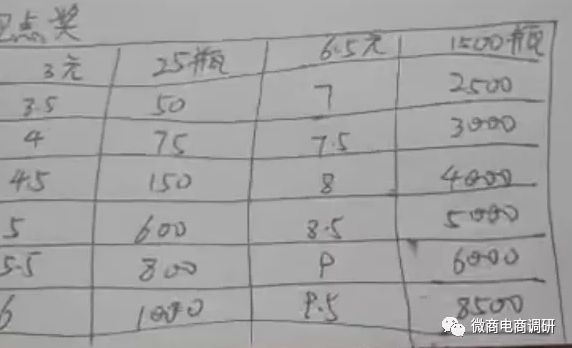 点奖
3元 25瓶 6.5元 1500瓶
3.5 50 7 2500
4 75 7.5 3000
4.5 150 8 4000
5 600 8.5 5000
5.5 800 9 6000
6 1000 9.5 8500
微商电商调研